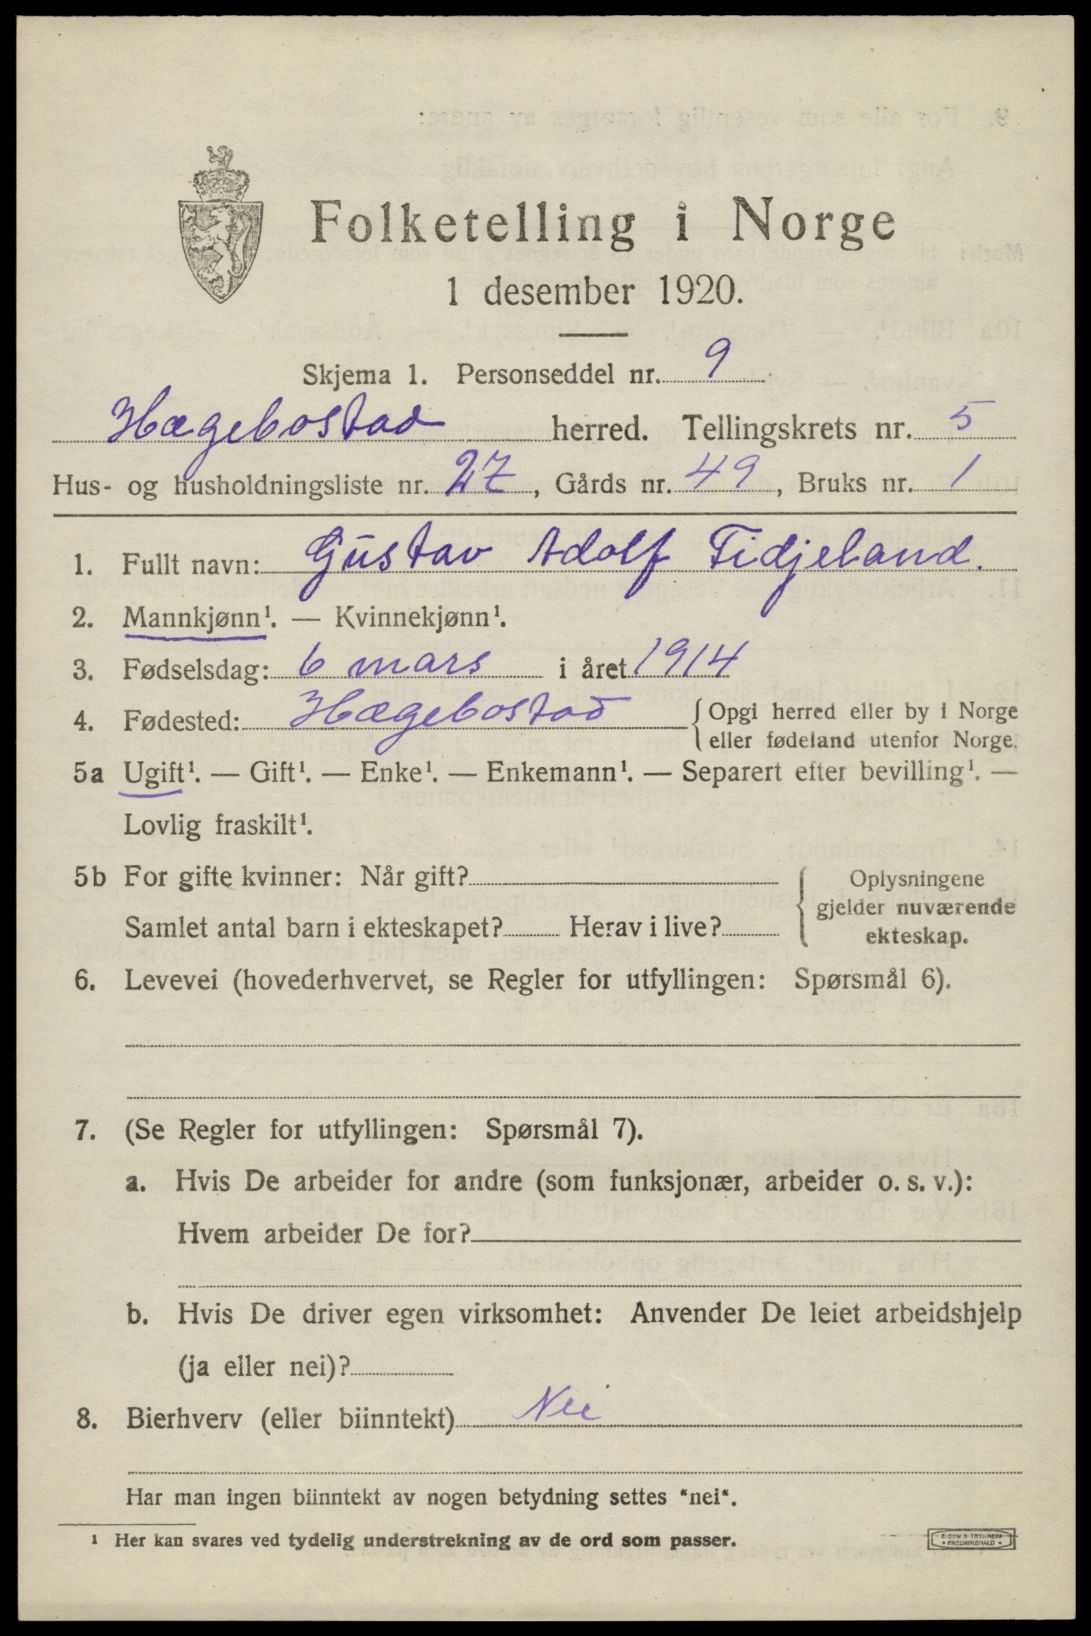 Folketelling i Norge
1 desember 1920.
Skjema 1. Personseddel nr. 9
Hægebostad herred. Tellingskrets nr. 5
Hus- og husholdningsliste nr. 27, Gårds nr. 49, Bruks nr. 1
1. Fullt navn: Gustav Adolf Tidjeland.
2. Mannkjønn¹. — Kvinnekjønn¹.
3. Fødselsdag: 6 mars i året 1914
4. Fødested: Hægebostad { Opgi herred eller by i Norge
eller fødeland utenfor Norge.
5a Ugift¹. — Gift¹. — Enke¹. — Enkemann¹. — Separert efter bevilling¹. —
Lovlig fraskilt¹.
5b For gifte kvinner: Når gift? { Oplysningene
gjelder nuværende
Samlet antal barn i ekteskapet? Herav i live? ekteskap.
6. Levevei (hovederhvervet, se Regler for utfyllingen: Spørsmål 6).
7. (Se Regler for utfyllingen: Spørsmål 7).
a. Hvis De arbeider for andre (som funksjonær, arbeider o. s. v.):
Hvem arbeider De for?
b. Hvis De driver egen virksomhet: Anvender De leiet arbeidshjelp
(ja eller nei)?
8. Bierhverv (eller biinntekt) Nei
Har man ingen biinntekt av nogen betydning settes "nei".
¹ Her kan svares ved tydelig understrekning av de ord som passer.